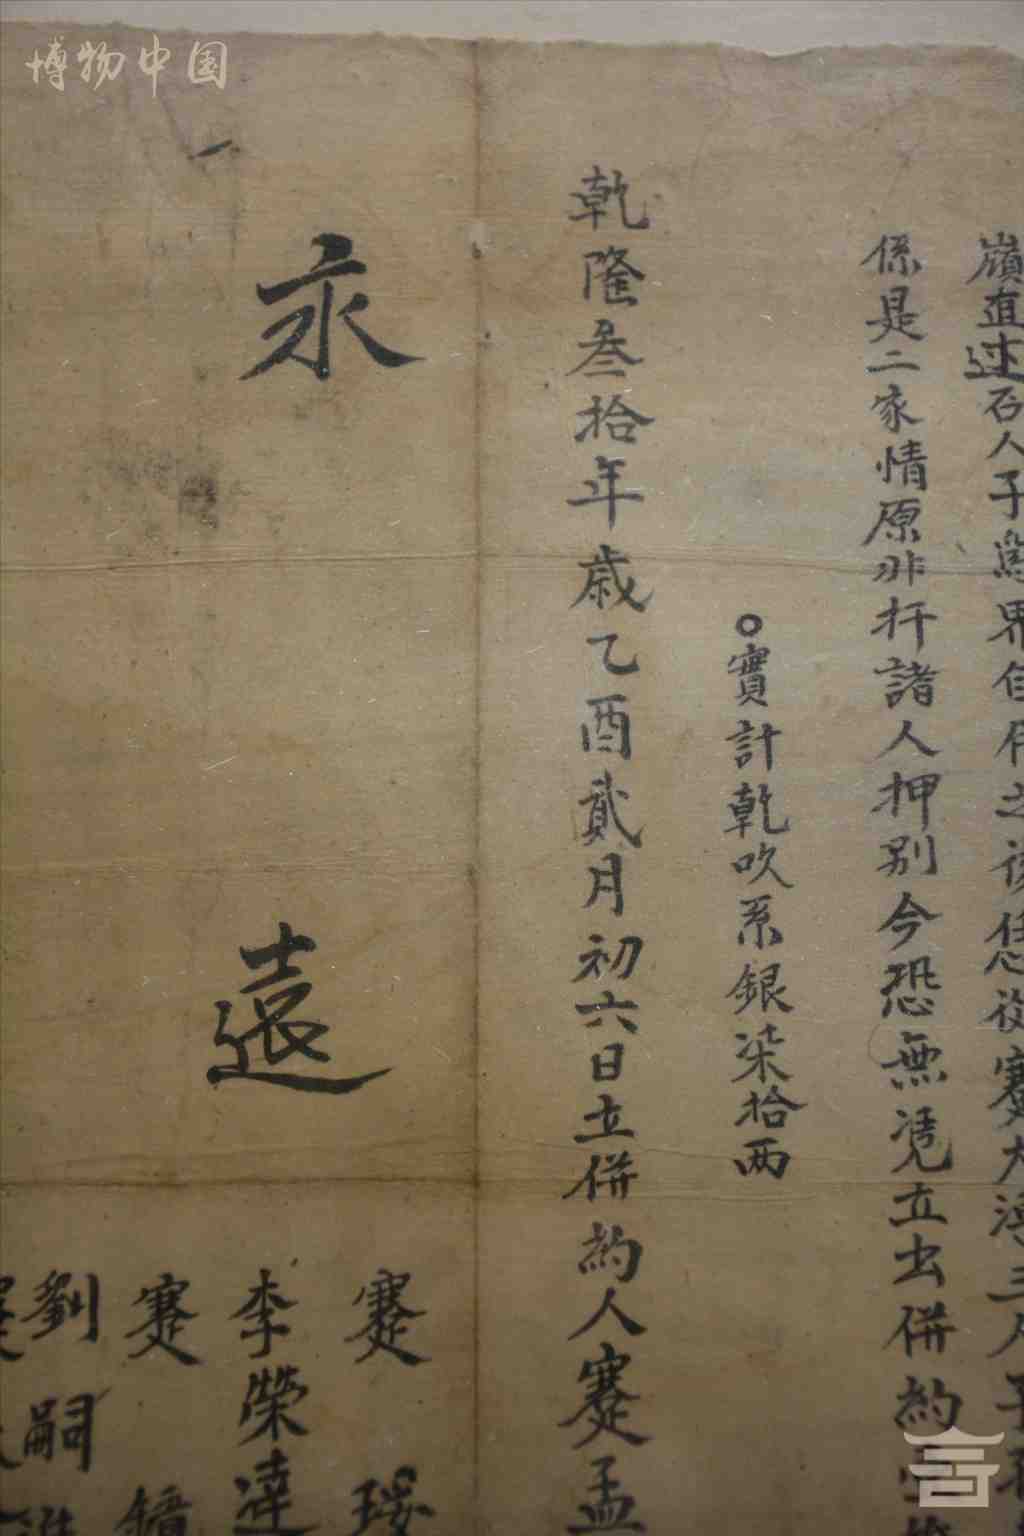 博物中国
嶺直述石人子為界自仵之後任從蹇大㳺三人子孫
係是二家情原非扞諸人押别今恐無凴立出併約
實計乾吹系銀柒拾两
乾隆叁拾年歲乙酉貳月初六日立併約人蹇孟
永遠
蹇
李榮達
蹇
劉嗣